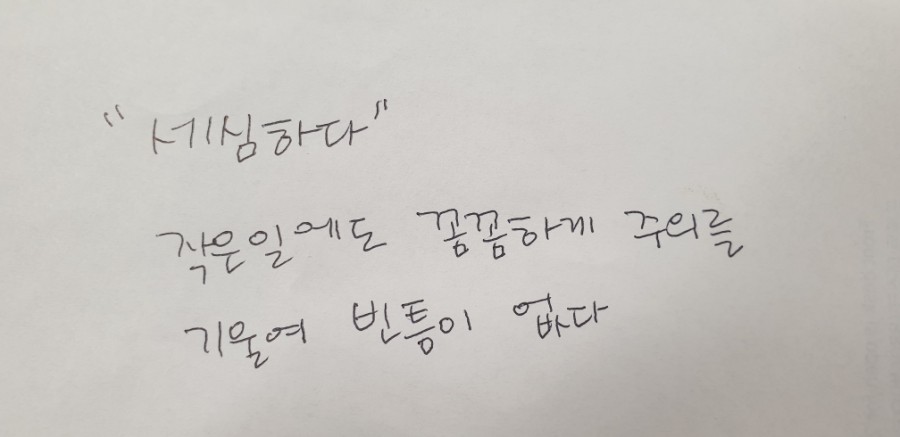 "세심하다"
작은일에도 꼼꼼하게 주의를
기울여 빈틈이 없다